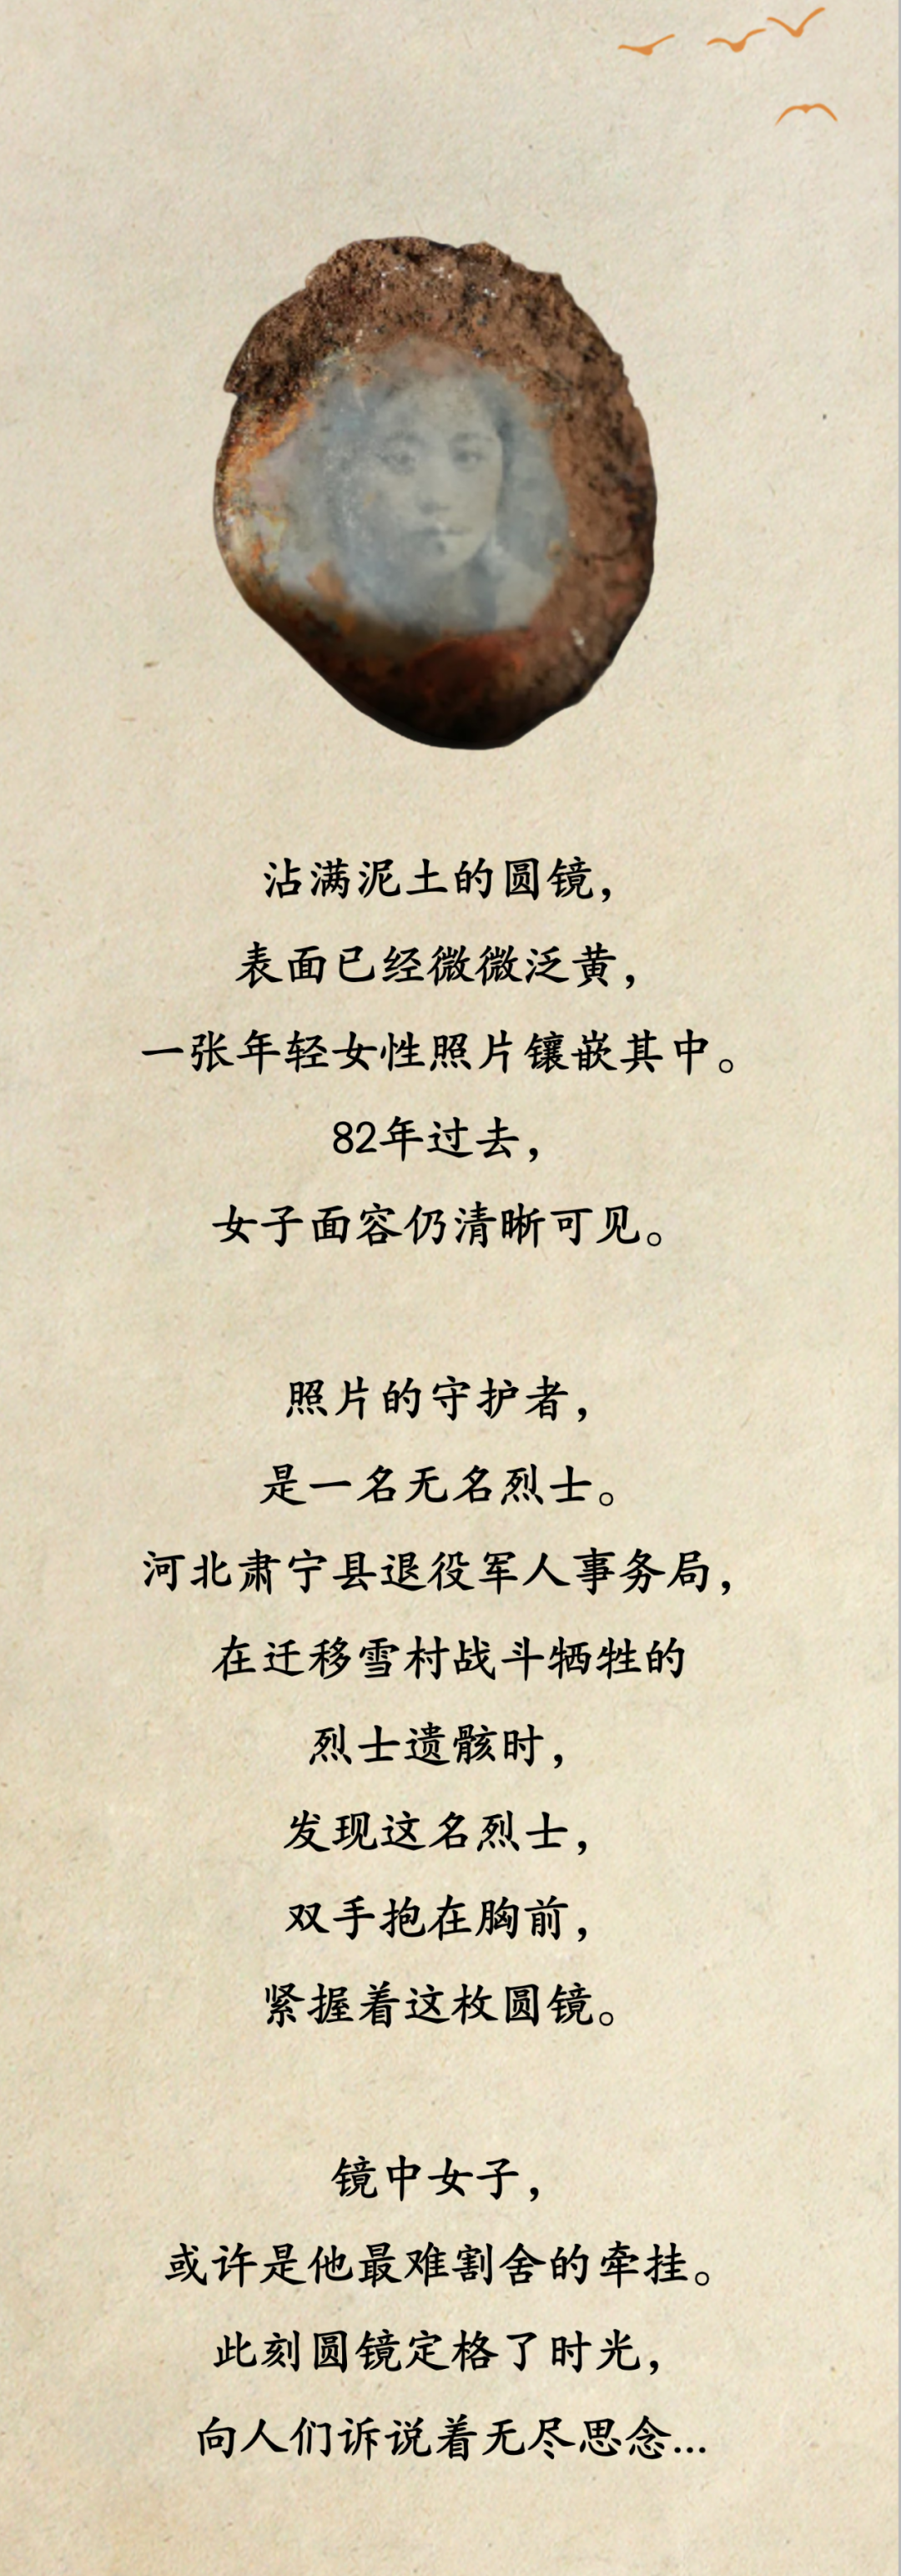 沾满泥土的圆镜，
表面已经微微泛黄，
一张年轻女性照片镶嵌其中。
82年过去，
女子面容仍清晰可见。
照片的守护者，
是一名无名烈士。
河北肃宁县退役军人事务局，
在迁移雪村战斗牺牲的
烈士遗骸时，
发现这名烈士，
双手抱在胸前，
紧握着这枚圆镜。
镜中女子，
或许是他最难割舍的牵挂。
此刻圆镜定格了时光，
向人们诉说着无尽思念...